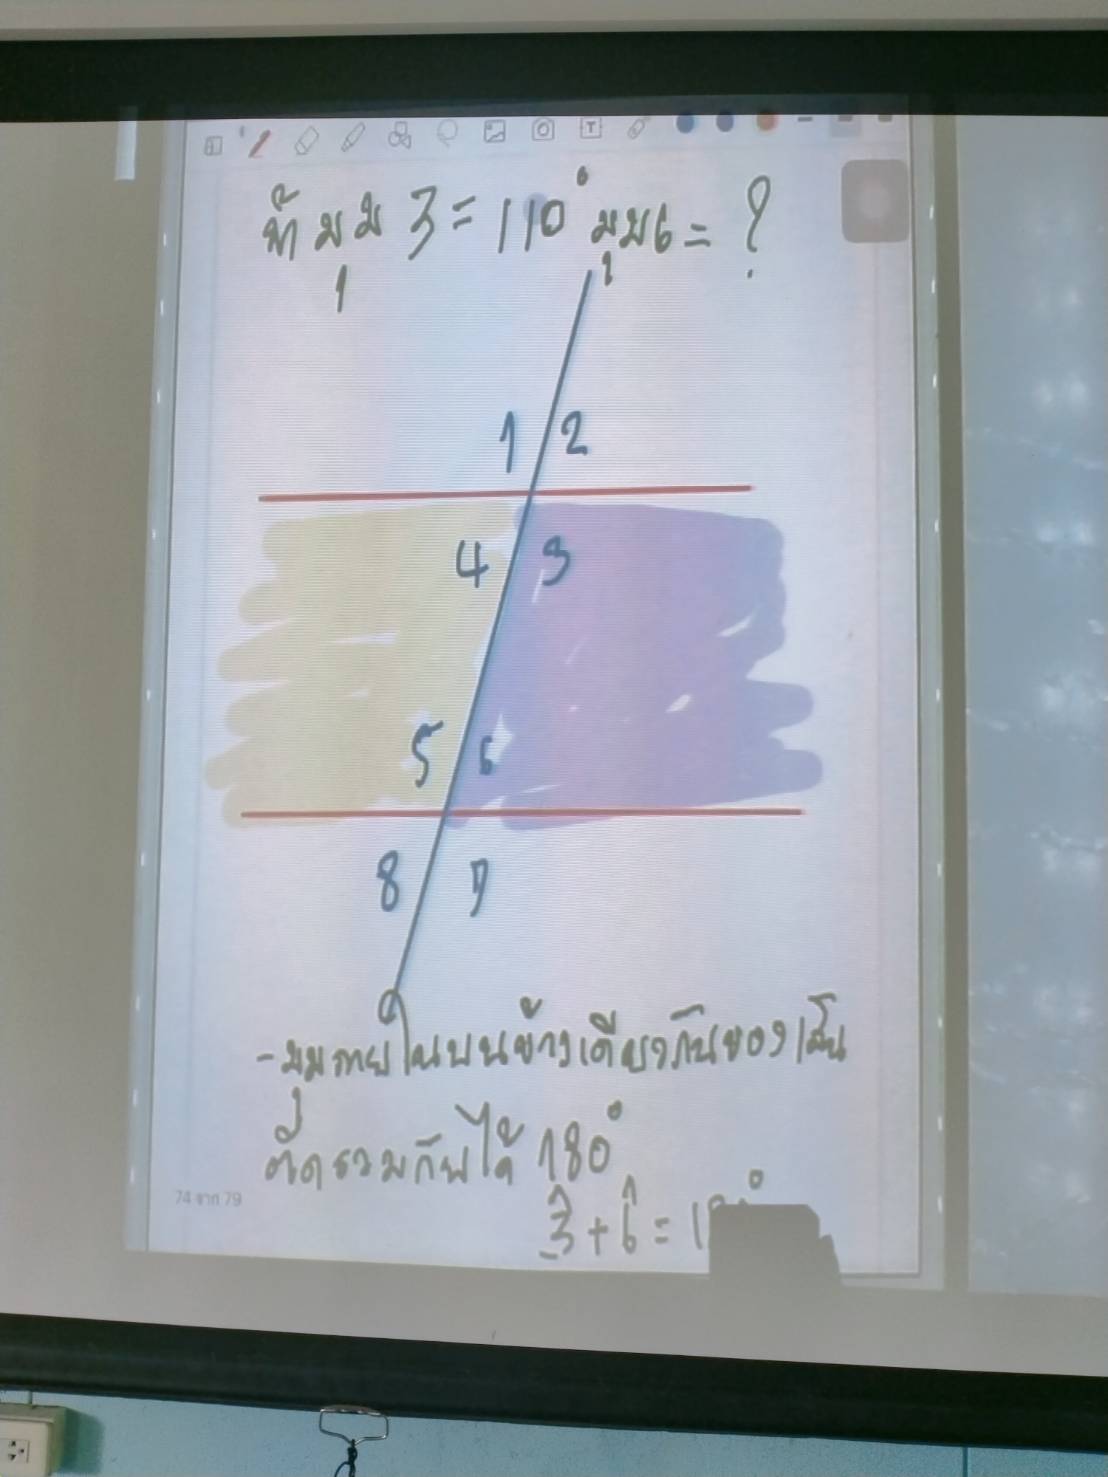 ถ้ามุม 3 = 110° มุม 6 = ?
1 2
4 3
5 6
8 7
- มุมภายในบนข้างเดียวกันของเส้น
ตัดรวมกันได้ 180°
3̂ + 6̂ =
74 จาก 79